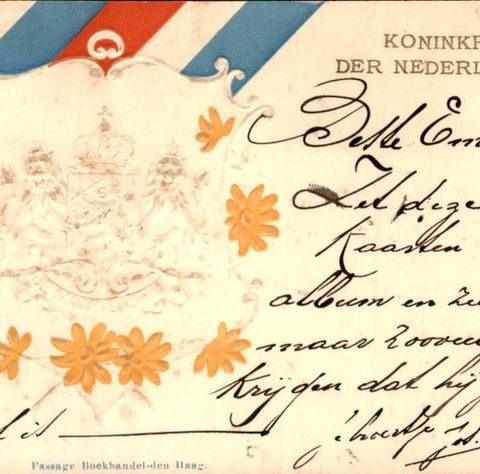 KONINKR
DER NEDERL
Beste Em
Zet deze
Kaarten
album en ze
maar zooveel
Krijgen dat hij
l is
'hoertje is
Passage Boekhandel-den Haag.